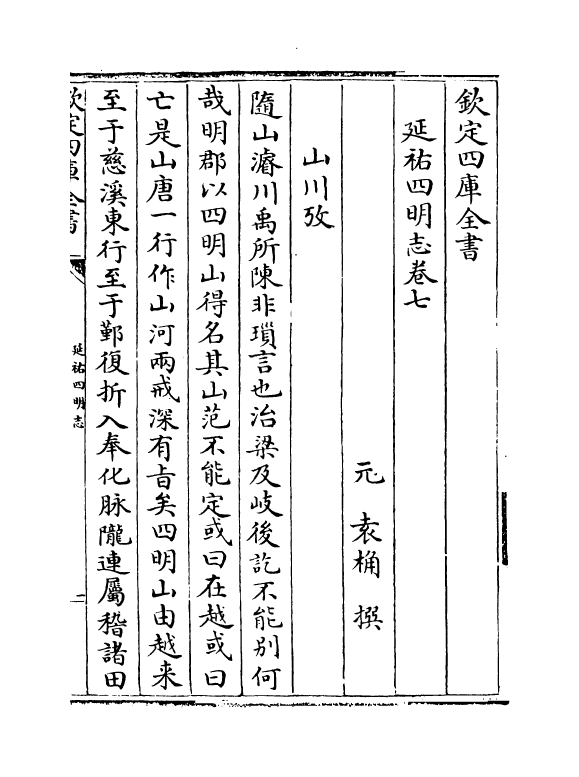 欽定四庫全書
延祐四明志卷七
元　袁桷　撰
山川攷
隨山濬川禹所陳非瑣言也治梁及岐後訖不能别何
哉明郡以四明山得名其山范不能定或曰在越或曰
亡是山唐一行作山河兩戒深有旨矣四明山由越来
至于慈溪東行至于鄞復折入奉化脉隴連屬稽諸田
欽定四庫全書
延祐四明志